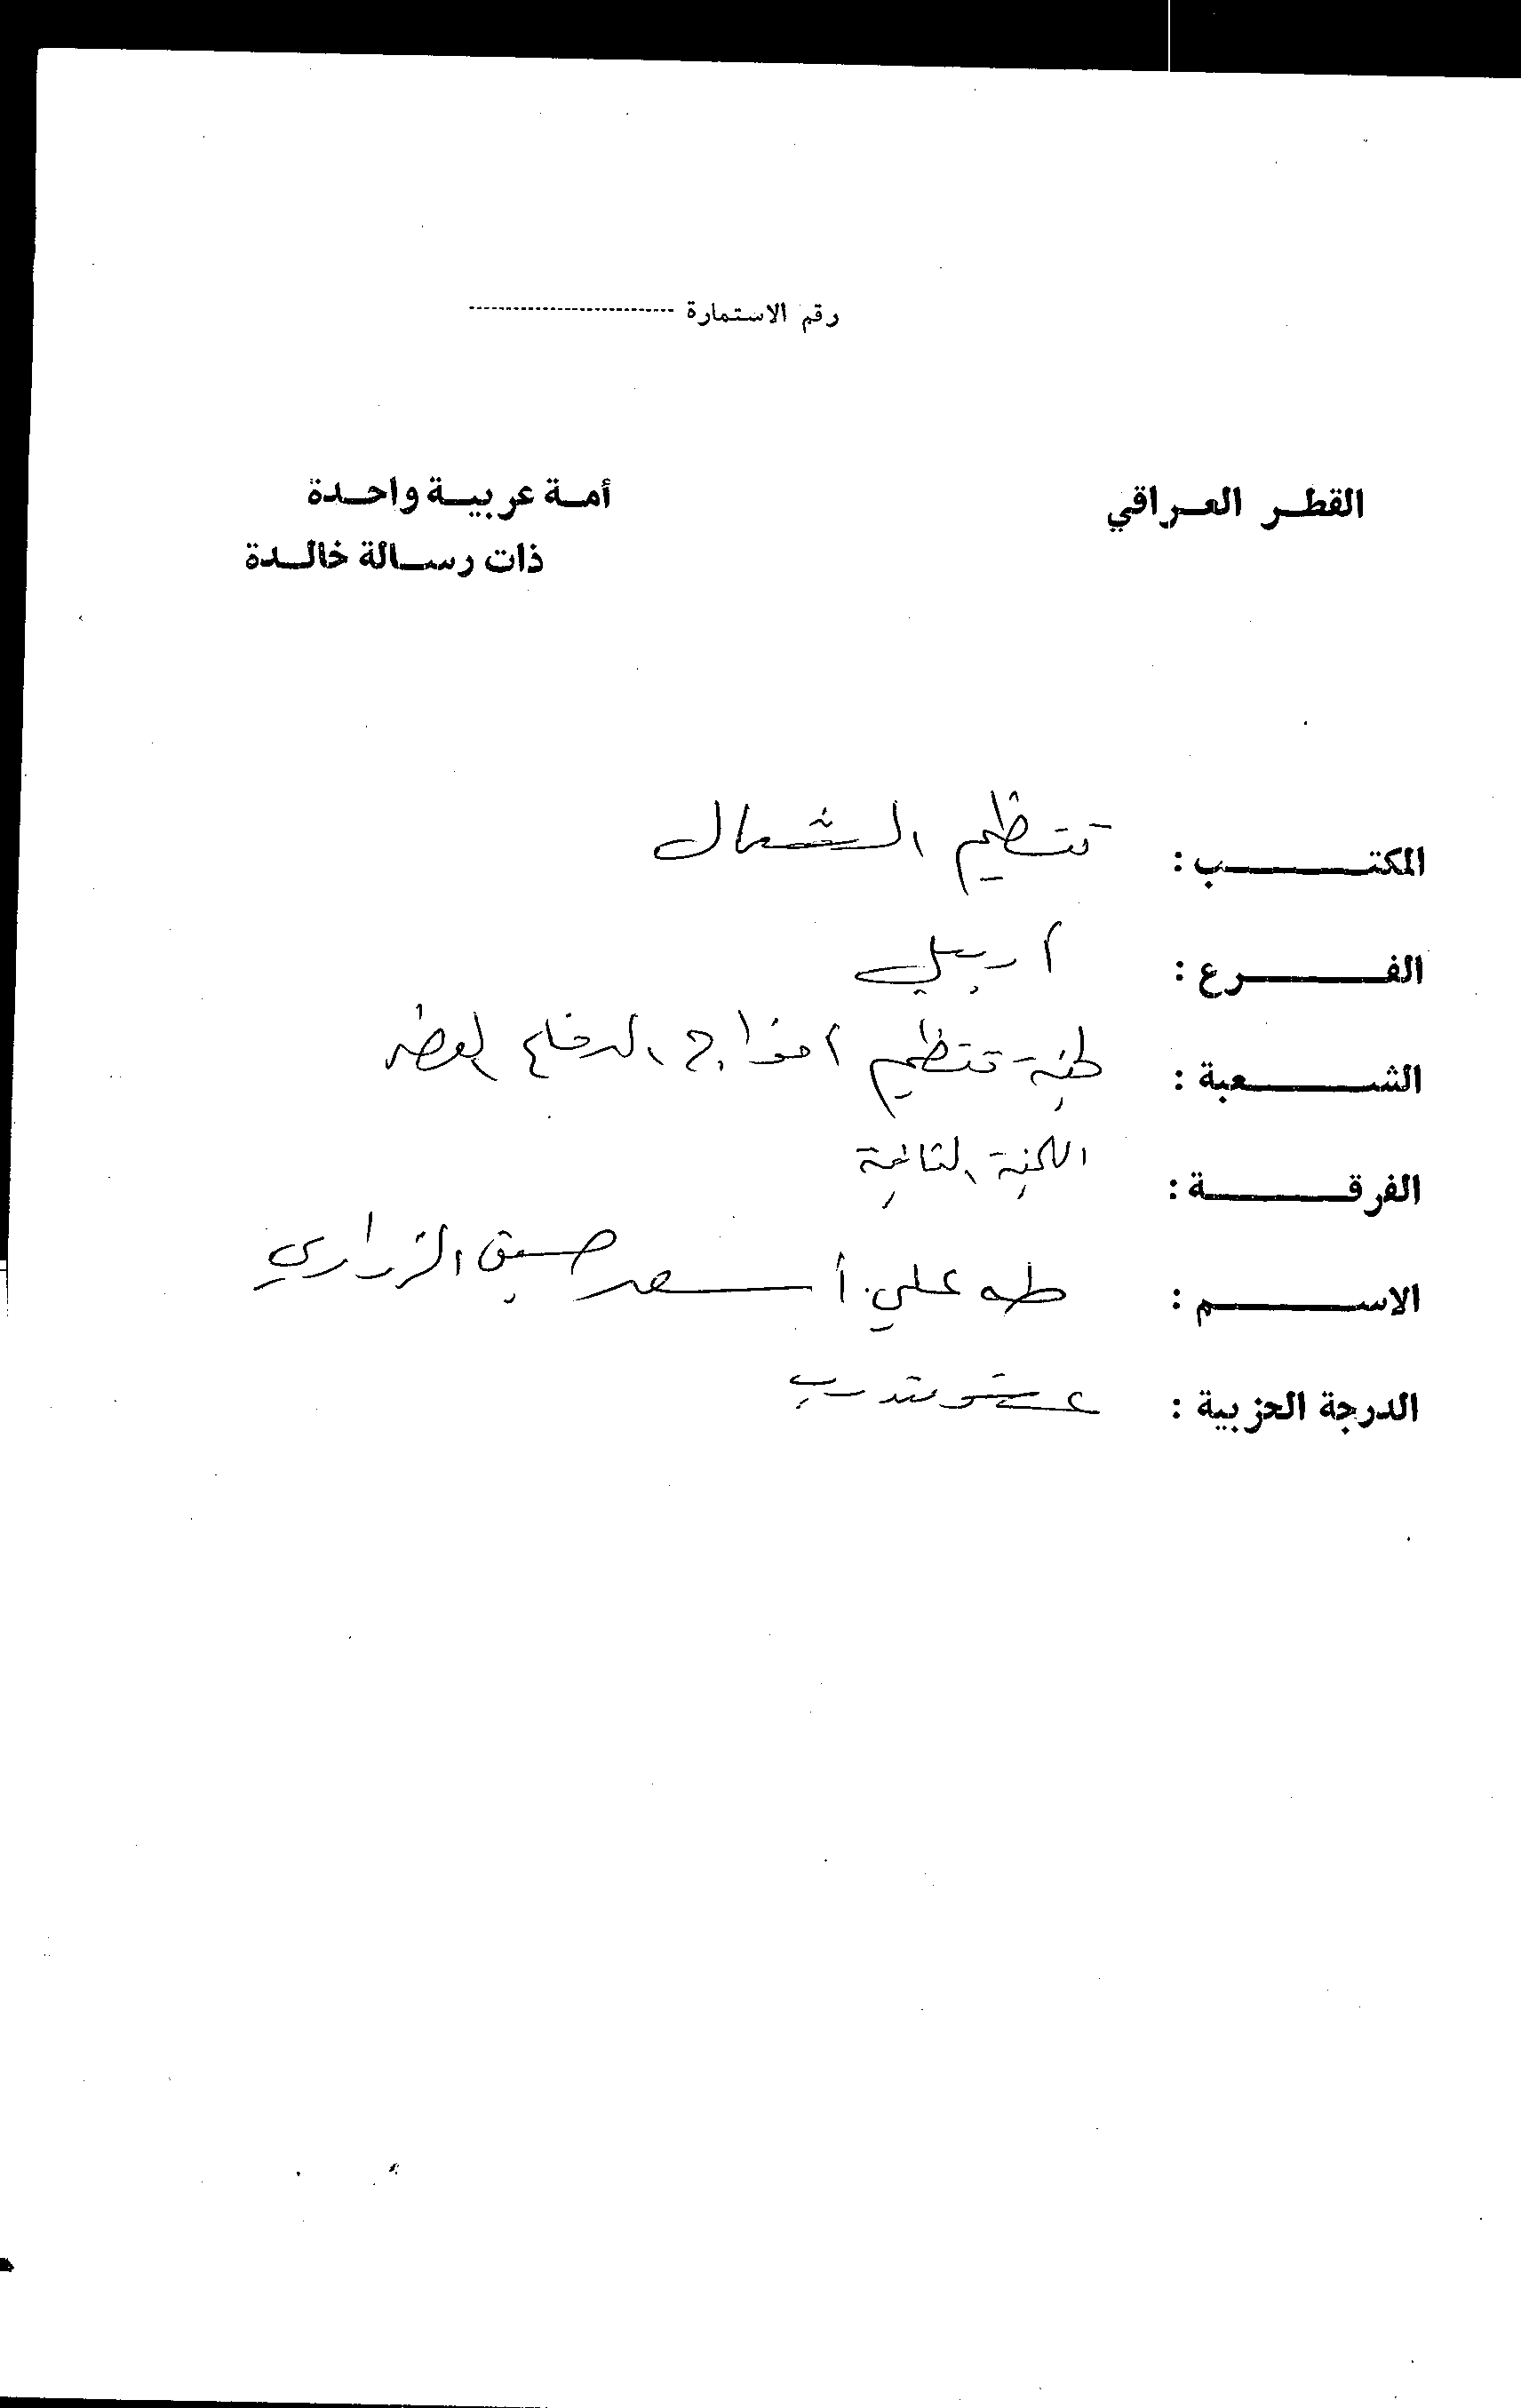 رقم الاستمارة ..........................
القطر العراقي
أمة عربية واحدة
ذات رسالة خالدة
المكتب : تنظيم الشمال
الفرع : اربيل
الشعبة : لجنة تنظيم افواج الدفاع الوطني
الفرقة : اللجنة الثانية
الاسم : طه علي أسعد صديق الزراري
الدرجة الحزبية : عضو متدرب